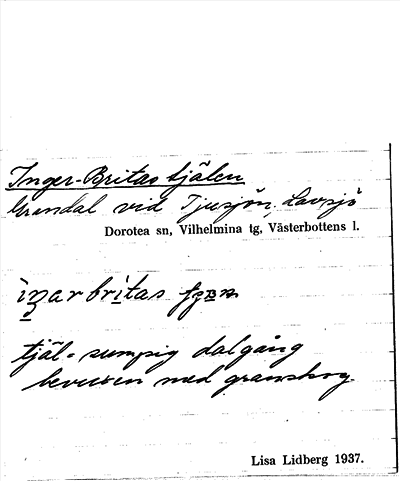 Inger-Britas tjälen
Grandal vid Tjusjön, Lavsjö
Dorotea sn, Vilhelmina tg, Västerbottens l.
britas
tjäl = sumpig dalgång
bevuxen med granskog
Lisa Lidberg 1937.